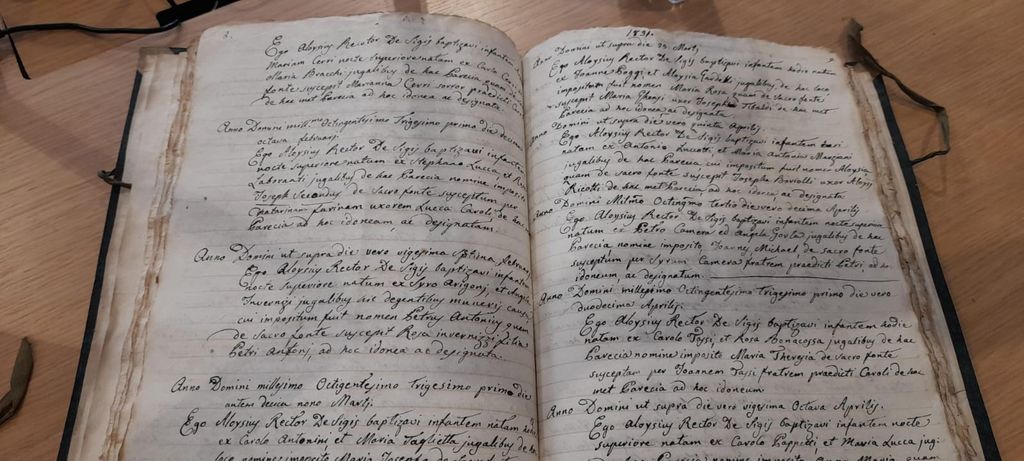 Ego Aloysius Rector De Sigis baptizavi infantem
Mariam Cerri nocte Superiore natam ex Carlo
Maria Bracchi jugalibus de hac Parecia quam
fonte suscepit Marianna Cerri soror praedicti
de hac met Parecia ad hoc idonea ac designata
Anno Domini mill.mo Octingentesimo Trigesimo primo die
octava februarij
Ego Aloysius Rector De Sigis baptizavi infantem
nocte superiore natum ex Stephano Lucca, et
Laboranti jugalibus de hac Parecia nomine
Joseph Secondus de Sacro fonte susceptum per
Catarinam farinam uxorem Lucca Caroli de hac
Parecia ad hoc idoneam, ac designatam.
Anno Domini ut supra die vero vigesima Septima
Ego Aloysius Rector De Sigis baptizavi infantem
nocte Superiore natum ex Syro Arigoni, et
Invernizi jugalibus hic degentibus muneris causa
cui impositum fuit nomen Petrus Antonius quem
de Sacro fonte suscepit Rosa invernizzi filia
Petri Antonj ad hoc idonea ac designata.
Anno Domini millesimo Octigentesimo trigesimo primo die
autem decima nono Martij
Ego Aloysius Rector De Sigis baptizavi infantem natam
ex Carolo Antonini et Maria Taglietta jugalibus de hac
loco nomine imposito Maria Josepha de
1831.
Anno Domini ut supra die 30 Martij
Ego Aloysius Rector De Sigis baptizavi infantem hodie natam
ex Joanne Poggi et Aloysia jugalibus de hac loco
impositum fuit nomen Maria Rosa quam de sacro fonte
suscepit Maria uxor Josephi de hac met
Parecia ad hoc idonea, ac designata
Anno Domini ut supra die vero quinta Aprilis
Ego Aloysius Rector De Sigis baptizavi infantem heri
natam ex Antonio Lucotti et Maria Antonia Marzani
jugalibus de hac Parecia cui impositum fuit nomen Aloysia
quam de sacro fonte suscepit Josepha uxor Aloysij
Ricotti de hac met Parecia, ad hoc idonea, ac designata
Anno Domini Millmo Octingmo tertio die vero decima Aprilis
Ego Aloysius Rector De Sigis baptizavi infantem nocte superiore
natum ex Petro Camera et Angela jugalibus de hac
Parecia nomine imposito Joannes Michael de sacro fonte
susceptum per Syrum Camera fratrem praedicti Petri, ad hoc
idoneum, ac designatum.
Anno Domini millesimo Octingentesimo trigesimo primo die vero
duodecima Aprilis
Ego Aloysius Rector De Sigis baptizavi infantem hodie
natam ex Carolo Tassi et Rosa Bonacossa jugalibus de hac
Parecia nomine imposito Maria Theresia de Sacro fonte
susceptam per Joannem Tassi fratrem praedicti Caroli de hac
met Parecia ad hoc idoneum
Anno Domini ut supra die vero vigesima Octava Aprilis.
Ego Aloysius Rector De Sigis baptizavi infantem nocte
superiore natam ex Carolo Pappetti et Maria Lucca jug:
Parecia nomine imposito Maria quam